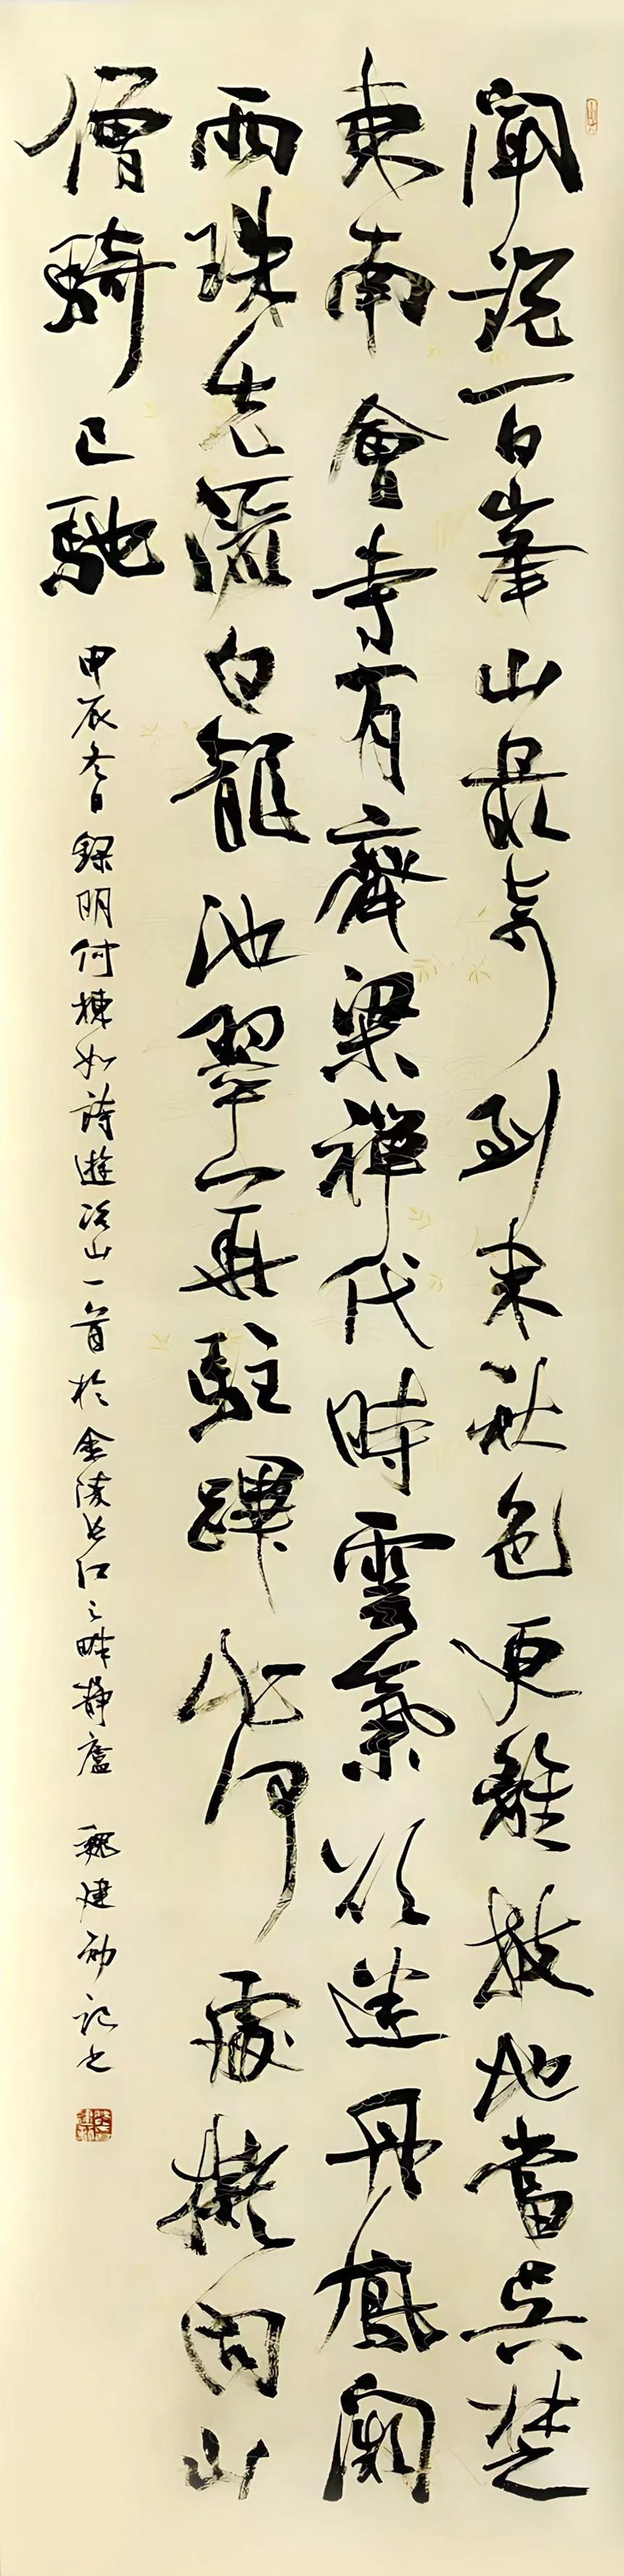 聞說百峯山最奇到來秋色更離披地當吳楚
東南會寺有齊梁禪代時雲氣欲迷丹鳳闕
雨珠先白龍池翠華駐蹕知何處擬問山
僧騎已馳
甲辰冬日錄明何棟如詩遊山一首於金陵長江之畔靜廬 魏建記之